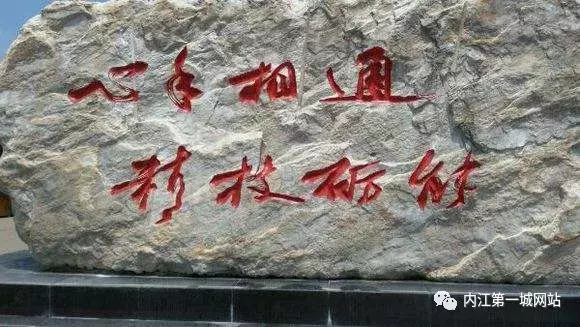 心手相通
精技砺能
内江第一城网站